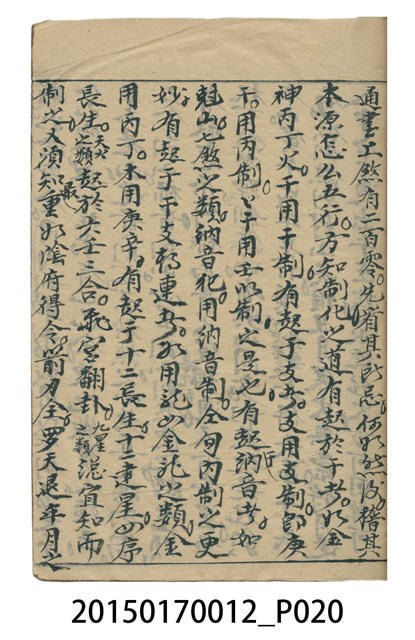 通書工煞有二百零先省其所忌何如然後稽其
本源怎么五行方知制化之道有起於干者如金
神丙丁火干用干制有起于支者支用支制即庚
干用丙制丙干用壬以制之是也有起納音者如
魁山七煞之類納音犯用納音制全旬內制之更
妙有起于干支相連者如用八山金龍之類金
用丙丁木用庚辛有起于十二長生十二建星如序
長生之類起於六壬三合飛宮翻卦九星之類混宜知而
制之又須知最重如陰府得令箭刃全羅天退年月之
20150170012_P020